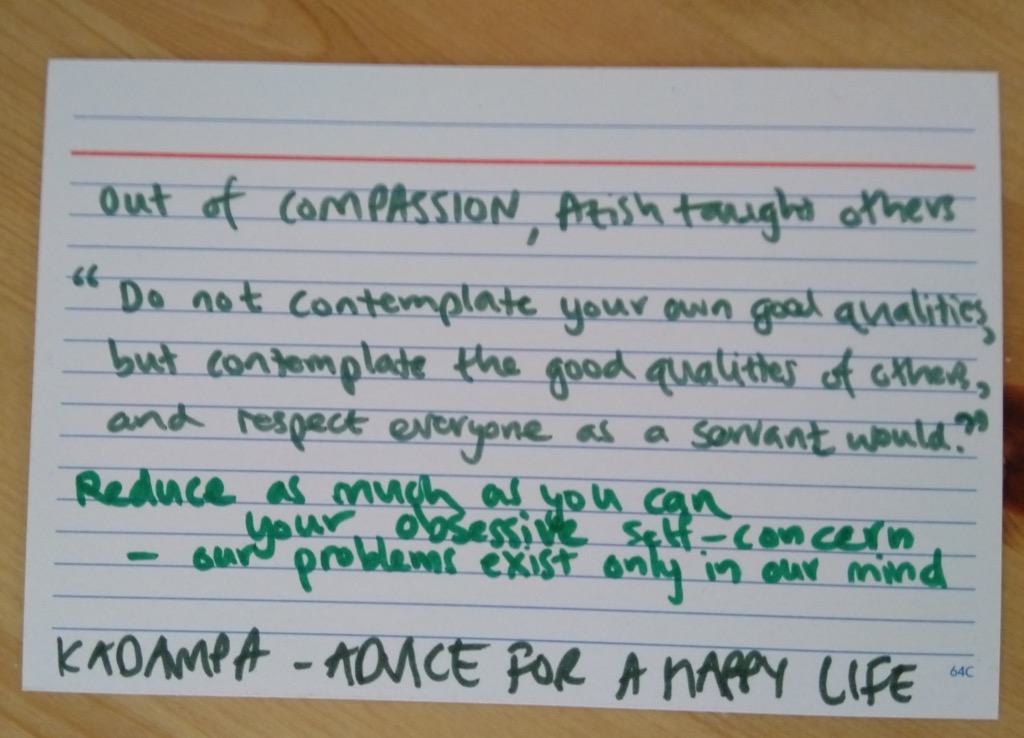 out of COMPASSION, Atish taught others
“Do not contemplate your own good qualities,
but contemplate the good qualities of others,
and respect everyone as a servant would.”
Reduce as much as you can
your obsessive self-concern
- our problems exist only in our mind
KADAMPA - ADVICE FOR A HAPPY LIFE
64C